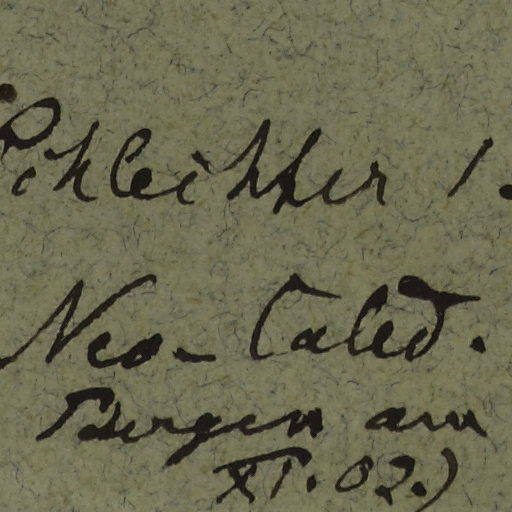 Schlechter 1.
Neo-Caled.
Bergen am
XI. 02.)